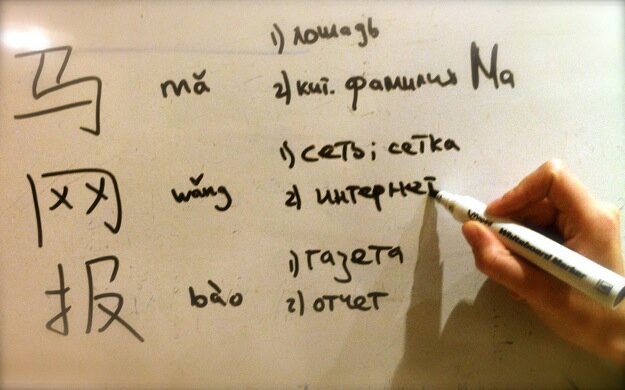 1) лошадь
马 mǎ 2) кит. фамилия Ма
1) сеть; сетка
网 wǎng 2) интернет
1) газета
报 bào 2) отчет
Whiteboard Marker